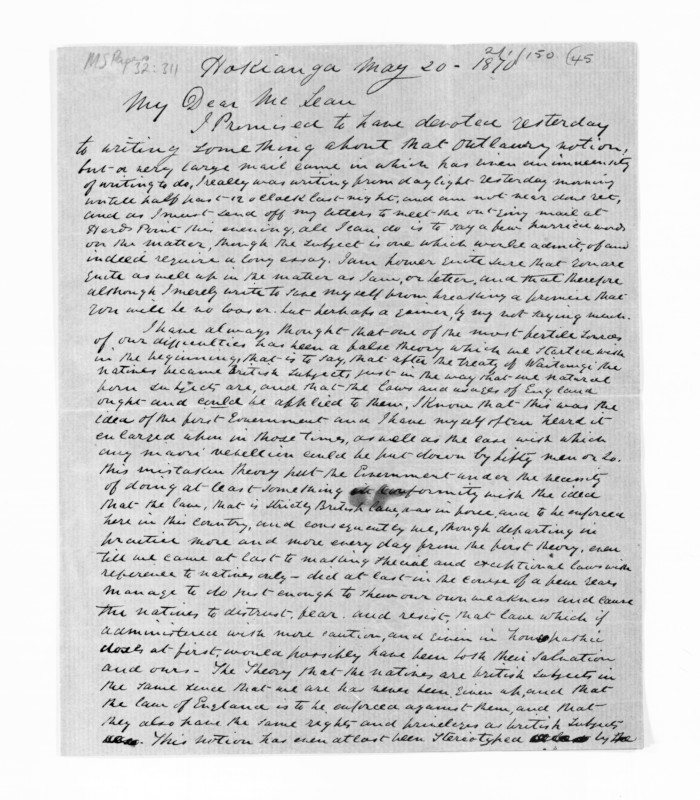 MS Papers 32:311
21/1/150 (45
Hokianga May 20 - 1870
My Dear Mc Lean
I Promised to have devoted yesterday
to writing something about that Outlawry notion,
but a very large mail came in which has given an immensity
of writing to do, I really was writing from daylight yesterday morning
untill half past 12 oClock last night, and am not near done yet,
and as I must send off my letters to meet the out going mail at
Herds Point this evening, all I can do is to say a few hurried words
on the matter, though the subject is one which would admit, of and
indeed require a long essay. I am however quite sure that you are
quite as well up in the matter as I am, or better, and that therefore
although I merely write to save myself from breaking a promise that
you will be no looser. but perhaps a gainer, by my not saying much.
I have always thought that one of the most fertile sources
of our difficulties has been a false theory which we started with
in the beginning, that is to say, that after the treaty of Waitangi the
natives became British subjects just in the way that we natural
born subjects are, and that the laws and usages of England
ought and could be applied to them, I know that this was the
idea of the first Government and I have myself often heard it
enlarged upon in those times, as well as the ease with which
any maori rebellion could be put down by fifty men or so.
this mistaken theory put the Government under the necessity
of doing at least something in conformity with the idea
that the law, that is strictly British law, was in force, and to be enforced
here in this country, and consequently we, though departing in
practice more and more every day from the first theory, even
till we came at last to making special and exceptional laws with
reference to natives only - did at last in the course of a few years
manage to do just enough to shew our own weakness and cause
the natives to distrust, fear. and resist, that law which if
administered with more caution, and given in homeopathic
doses at first, would possibly have been both their salvation
and ours - The Theory that the natives are British subjects in
the same sence that we are has never been given up, and that
the law of England is to be enforced against them, and that
they also have the same rights and privileges as British subjects
. This notion has even at last been stereotyped by the